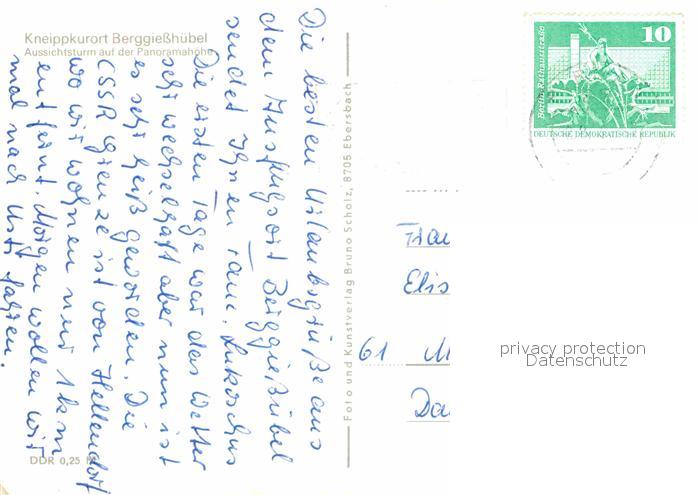 Kneippkurort Berggießhübel
Aussichtsturm auf der Panoramahöhe
Die besten Urlaubsgrüße aus
dem Ausflugsort Berggießübel
sendet Ihnen Fam. Lukoschus
Die ersten Tage war das Wetter
sehr wechselhaft aber nun ist
es sehr heiß geworden. Die
CSSR Grenze ist von Hellendorf
wo wir wohnen nur 1 km
entfernt. Morgen wollen wir
mal nach Usti fahren.
DDR 0,25 M
Foto und Kunstverlag Bruno Scholz, 8705 Ebersbach
Berlin, Rathausstraße
10
DEUTSCHE DEMOKRATISCHE REPUBLIK
Frau
Elis
61 M
Da
privacy protection
Datenschutz